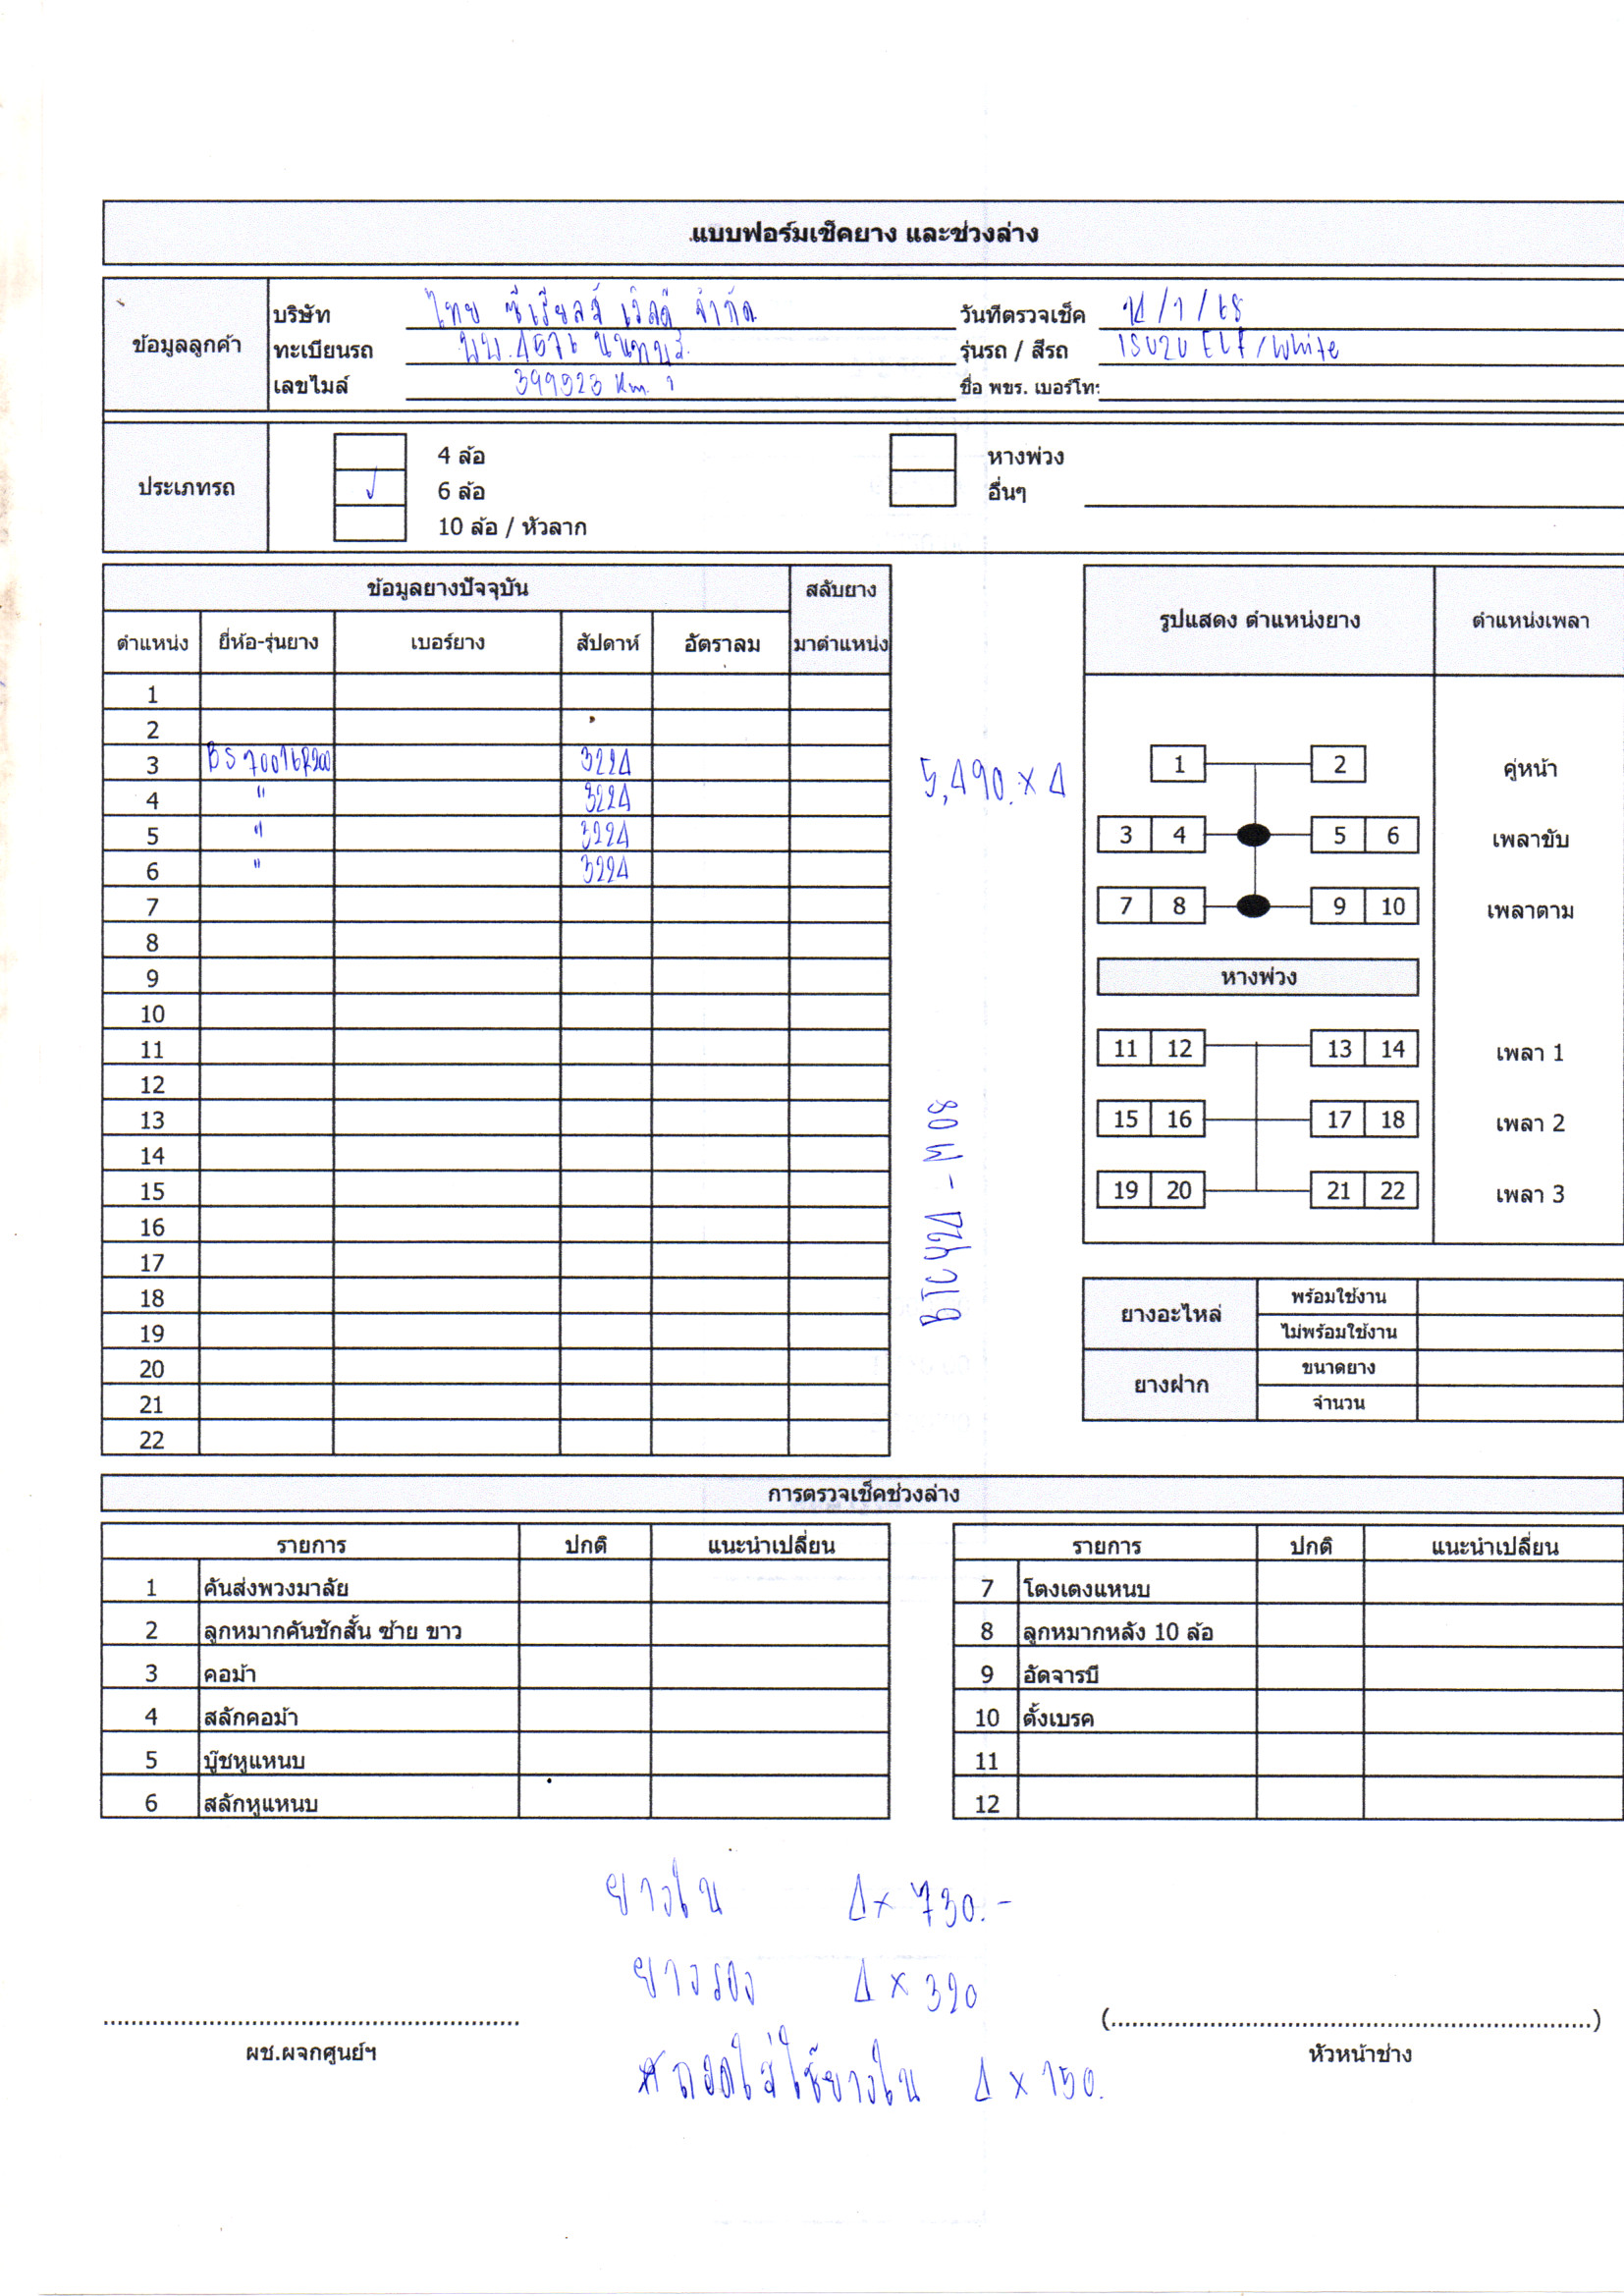 แบบฟอร์มเช็คยาง และช่วงล่าง
ข้อมูลลูกค้า
บริษัท ไทย ซีเรียลส์ เวิลด์ จำกัด
วันที่ตรวจเช็ค 14/1/68
ทะเบียนรถ นนทบุรี
รุ่นรถ / สีรถ ISUZU ELF/White
เลขไมล์ 399323 Km.
ชื่อ พขร. เบอร์โทร
ประเภทรถ
4 ล้อ
หางพ่วง
✓ 6 ล้อ
อื่นๆ
10 ล้อ / หัวลาก
ข้อมูลยางปัจจุบัน สลับยาง
ตำแหน่ง ยี่ห้อ-รุ่นยาง เบอร์ยาง สัปดาห์ อัตราลม มาตำแหน่ง
1
2
3 BS 70016R200 3224
4 " 3224
5 " 3224
6 " 3224
7
8
9
10
11
12
13
14
15
16
17
18
19
20
21
22
5,490.x 4
รูปแสดง ตำแหน่งยาง ตำแหน่งเพลา
1 2 คู่หน้า
3 4 5 6 เพลาขับ
7 8 9 10 เพลาตาม
หางพ่วง
11 12 13 14 เพลา 1
15 16 17 18 เพลา 2
19 20 21 22 เพลา 3
ยางอะไหล่ พร้อมใช้งาน
ไม่พร้อมใช้งาน
ยางฝาก ขนาดยาง
จำนวน
การตรวจเช็คช่วงล่าง
รายการ ปกติ แนะนำเปลี่ยน
1 คันส่งพวงมาลัย
2 ลูกหมากคันชักสั้น ซ้าย ขาว
3 คอม้า
4 สลักคอม้า
5 บู๊ชหูแหนบ
6 สลักหูแหนบ
รายการ ปกติ แนะนำเปลี่ยน
7 โตงเตงแหนบ
8 ลูกหมากหลัง 10 ล้อ
9 อัดจารบี
10 ตั้งเบรค
11
12
ยางใน 4x 730.-
ยางรอง 4 x 320
*ถอดใส่ใช้ยางใน 4 x 150.
ผช.ผจกศูนย์ฯ
(..........)
หัวหน้าช่าง